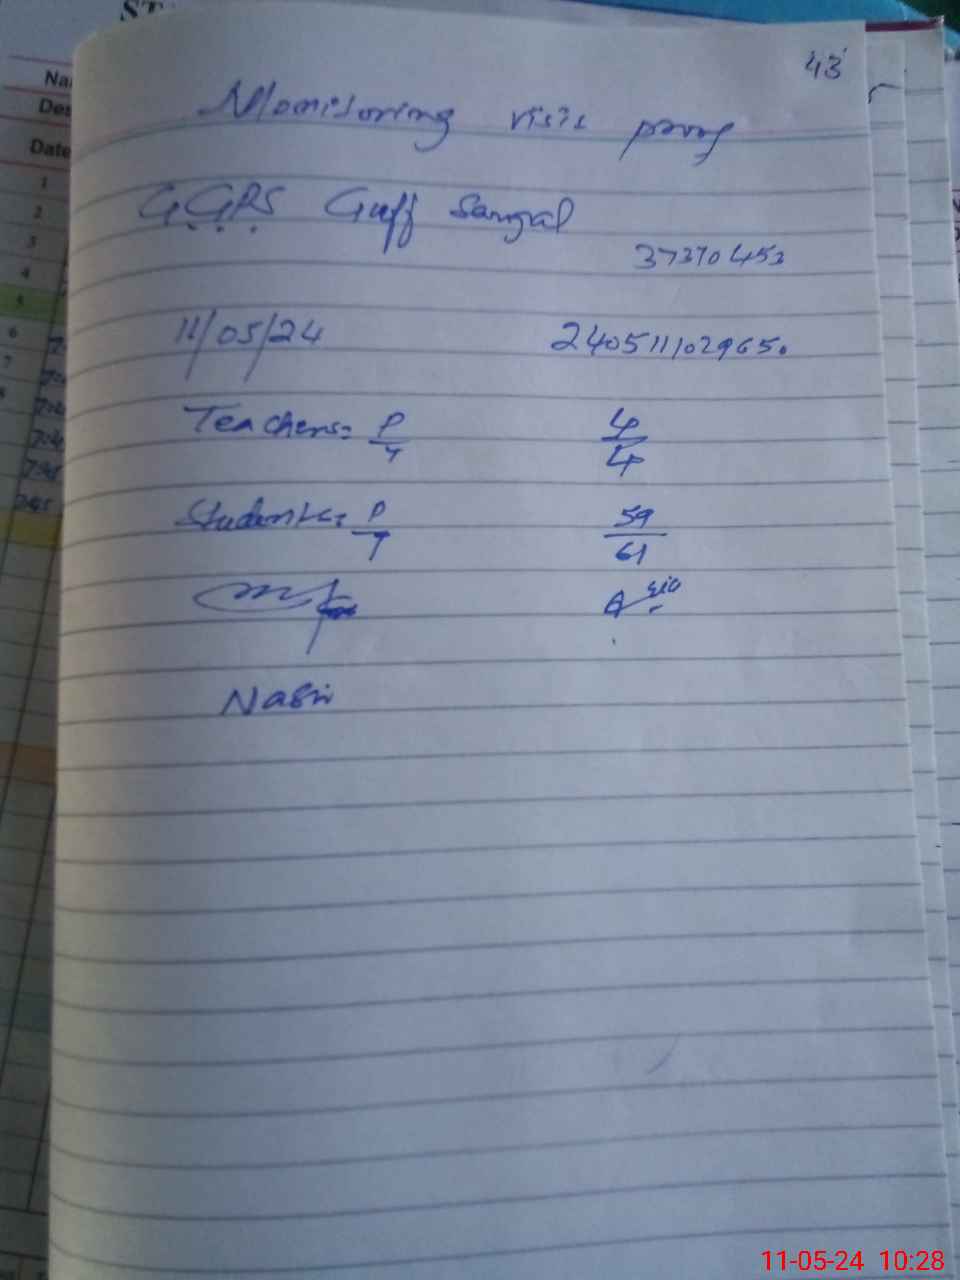 43
Monitoring visit proof
G.G.P.S Guff Sangral
37370453
11/05/24
240511102965.
Teachers = P/T 4/4
Students = P/T 59/61
Asia
Nasir
Date
1
2
3
4
5
6
7
11-05-24 10:28